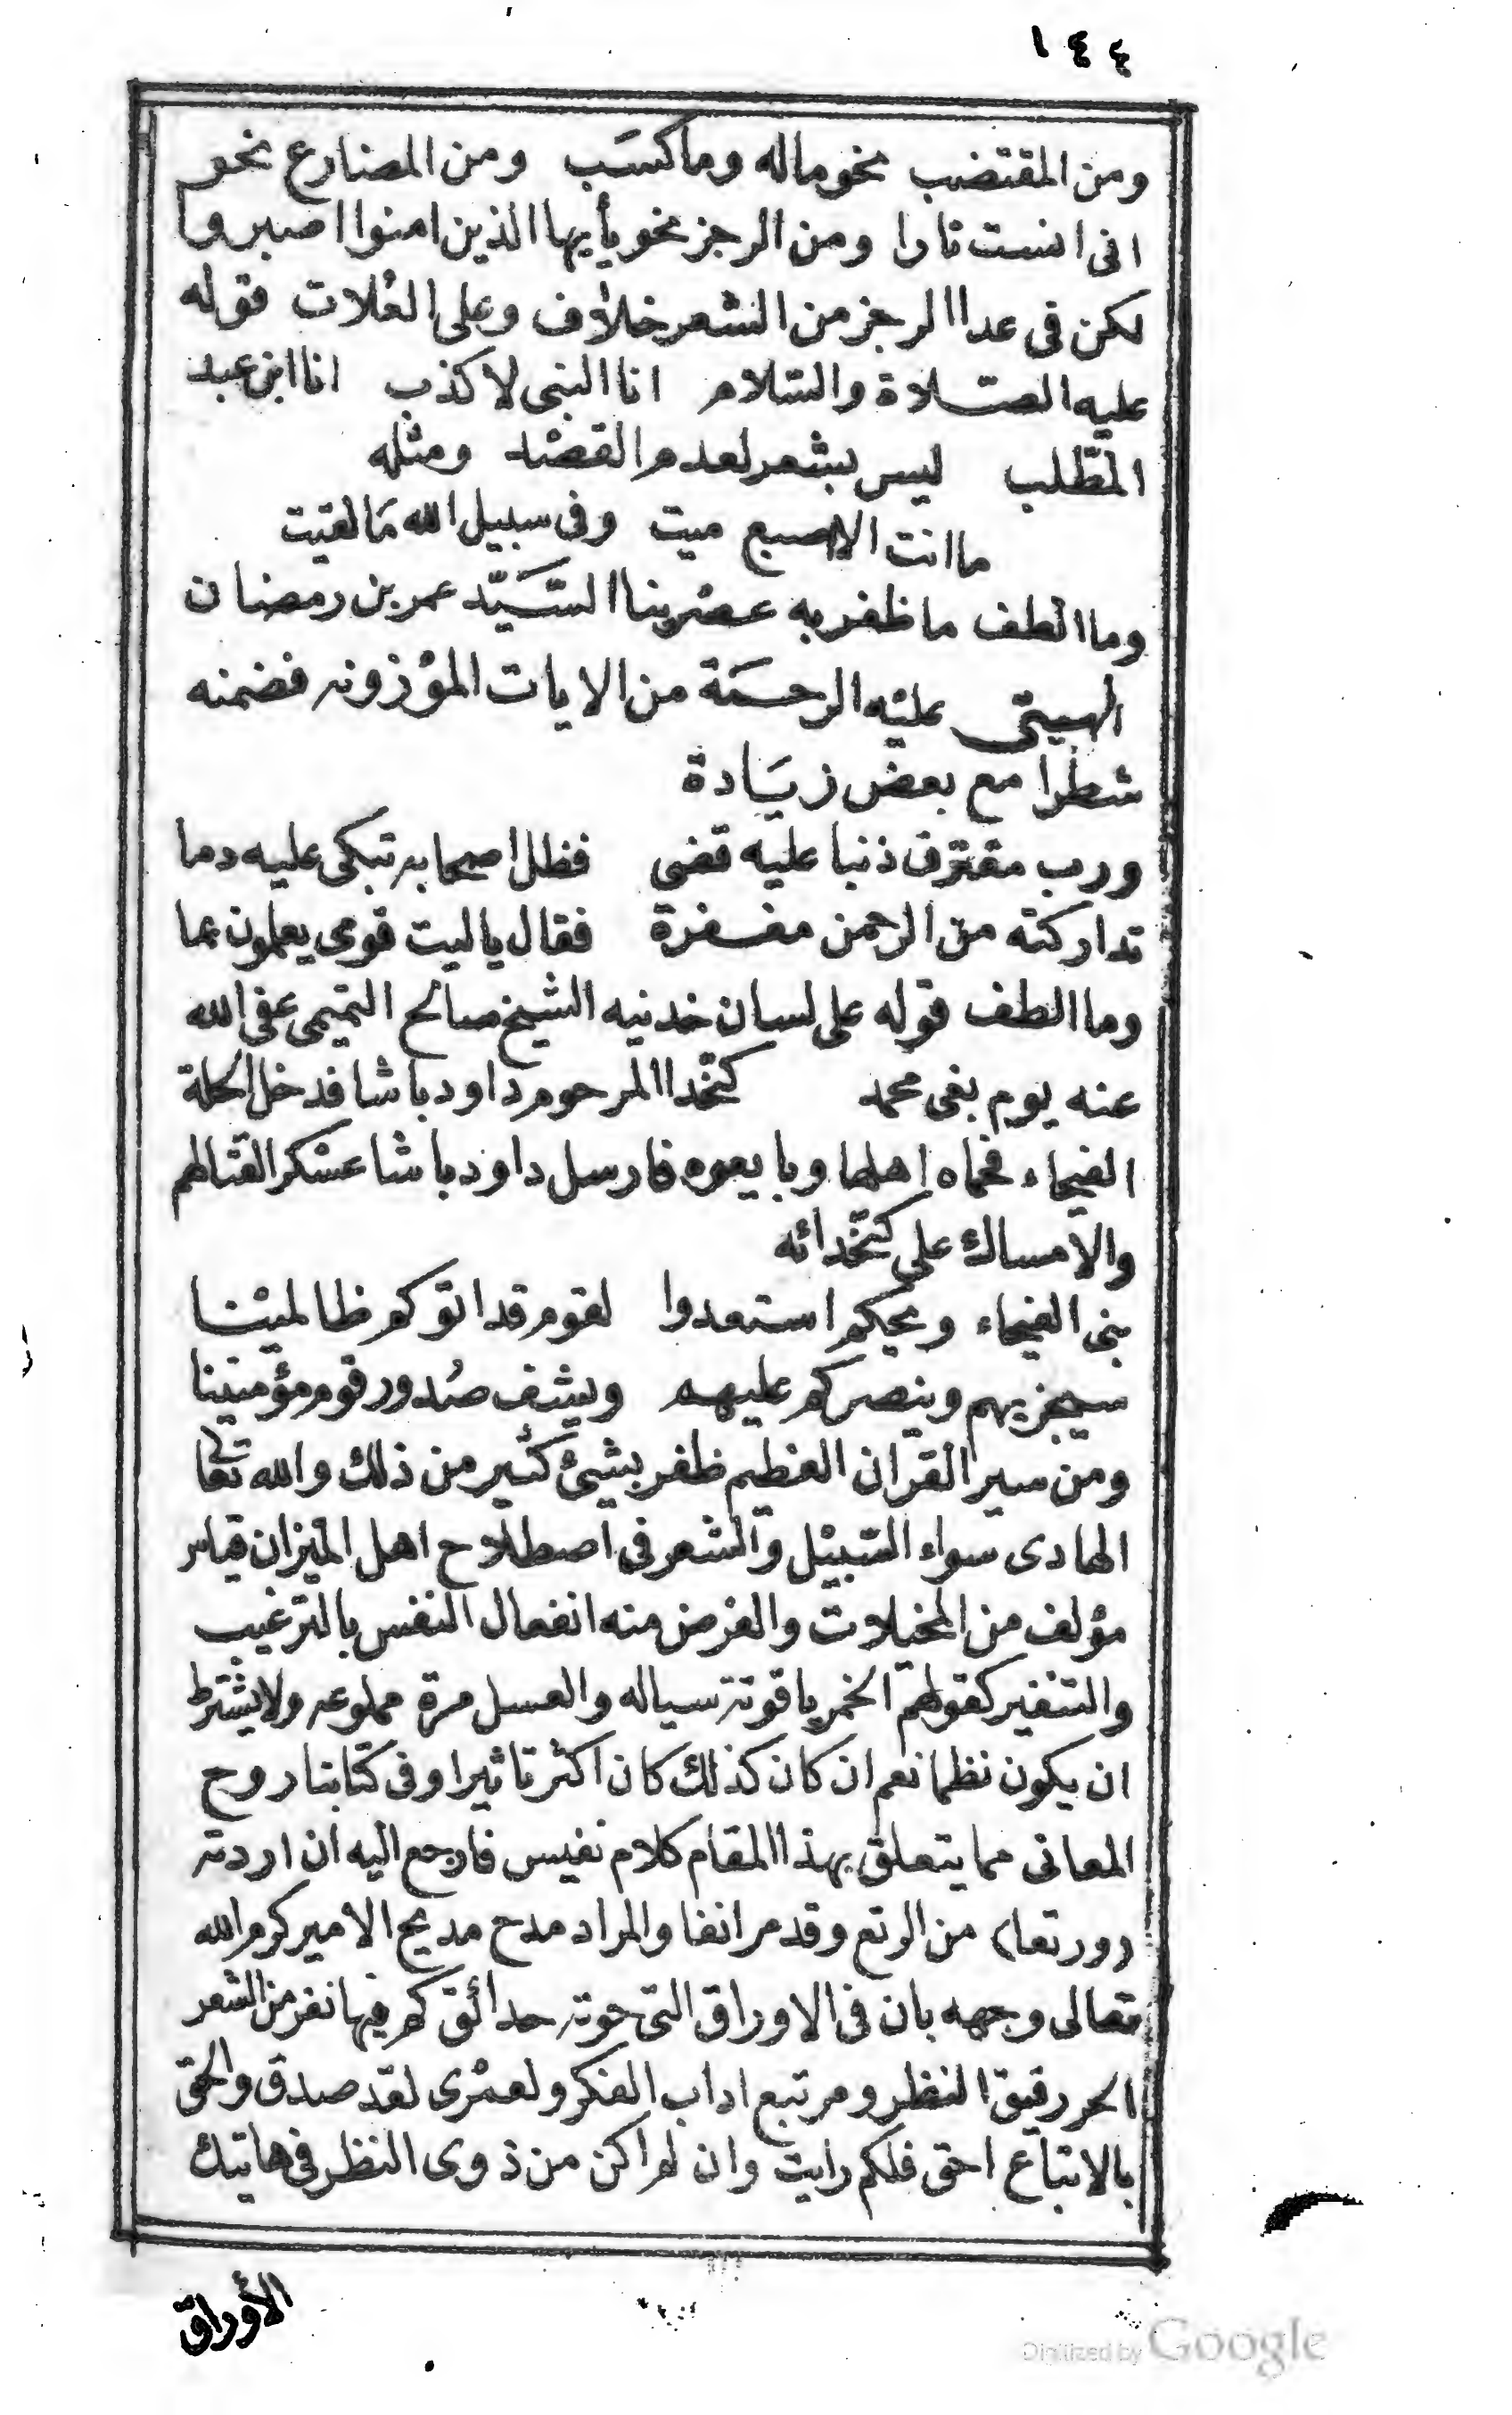 ١٤٤
ومن المقتضب نحو ماله وما كسَب ومن المضارع نحو
انى انست نارا ومن الرجز نحو يأيها الذين امنوا اصبروا
لكن فى عدا الرجز من الشعر خلاف وعلى العُلات فقوله
عليه الصّلاة والسّلام انا النبى لا كذب انا ابن عبد
المطّلب ليس بشعر لعدم القصْد ومثله
ما انت الا اصبع ميت وفى سبيل الله مَا لقيت
وما الطف ما ظفر به عصْرينا السَّيّد عمر بن رمضان
الهيتى عليْه الرحمَة من الايات الموْزونه فضمنه
شطرا مع بعض زيَادة
ورب مقترف ذنبا عليه قضى فظل اصحابه تبكى عليه دما
تداركته من الرحمن مغفرة فقال ياليت قومى يعلمون بما
وما الطف قوله على لسان خدنيه الشيخ صالح التميمى عفى الله
عنه يوم بغى محمد كتخدا المرحوم داود باشا فدخل الحلة
الفيحاء فحماه اهلها وبايعوه فارسل داود باشا عسْكر القتالهم
والامساك على كتخدائه
بنى الفيحاء ويحكم استعدوا لقوم قد اتوكم ظالميْنا
سيجزيهم وينصركم عليهم ويشف صُدور قوم مؤمنينا
ومن سير القران العظيم ظفر بشيئ كثير من ذلك والله تعا
الهادى سواء السّبيْل والشعر فى اصطلاح اهل الميزان قياس
مؤلف من المخيلات والغرض منه انفعال النفس بالترغيب
والتنفير كقولهم الخمر ياقوته سياله والعسل مرة مهوعه ولا يشترط
ان يكون نظما نعم ان كان كذلك كان اكثر تاثيرا وفى كتابنا روح
المعانى مما يتعلق بهذا المقام كلام نفيس فارجع اليه ان اردته
(ورتعا) من الرتع وقد مر انفا والمراد مدح مديح الامير كرم الله
تعالى وجهه بان فى الاوراق التى حوته حدائق كم فيها نفر من الشعر
الحر رقيق النظر ومرتبع اداب الفكر ولعمْرى لقد صدق والحق
بالاتباع احق فلكم رايت وان لم اكن من ذوى النظر فى هاتيك
الأوراق
Digitized by Google